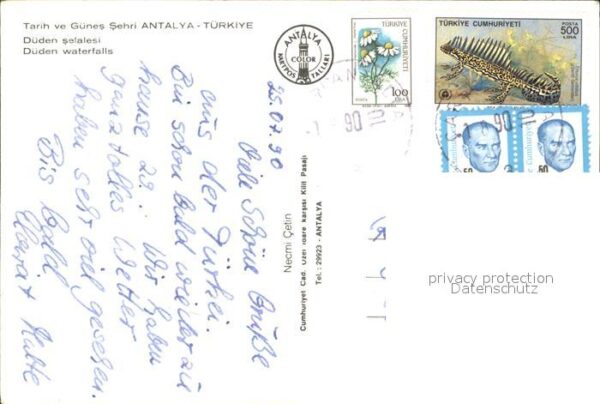 Tarih ve Güneş Şehri ANTALYA - TÜRKIYE
Düden şelalesi
Düden waterfalls
ANTALYA
COLOR
KARTPOSTALLARI
TÜRKİYE
CUMHURİYETİ
100
LİRA
TÜRKİYE CUMHURİYETİ
POSTA
500
LİRA
90
90
50
50
25.07.90
Viele Schöne Grüße
aus der Türkei.
Bin schon bald wieder zu
hause
Wir haben
ganz tolles Wetter
haben sehr viel gesehen.
Bis bald
Necmi Çetin
Cumhuriyet Cad. Özel İdare karşısı Kilit Pasajı
Tel.: 29923 - ANTALYA
privacy protection
Datenschutz